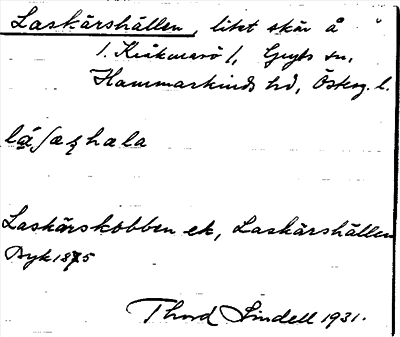 Laskärshällen, litet skär å
l. Kråkmarö l, Gryts sn,
Hammarkinds hd, Österg. l.
Laskärskobben ek, Laskärshällen
Thord Lindell 1931.